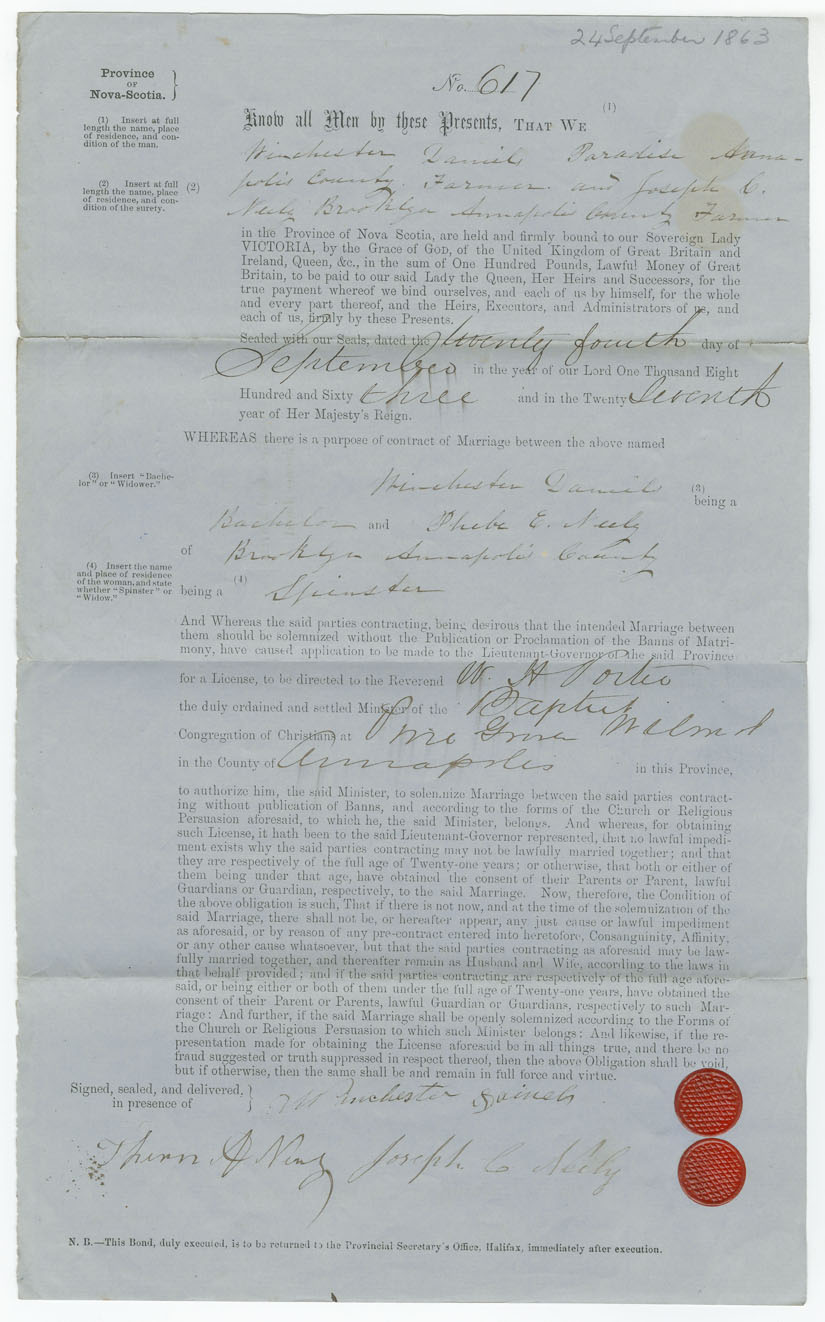 24 September 1863
Province
OF
Nova-Scotia. }
No. 617
(1) Insert at full
length the name, place
of residence, and con-
dition of the man.
Know all Men by these Presents, THAT WE (1)
Winchester Daniels Paradise Anna-
(2) Insert at full
length the name, place
of residence, and con-
dition of the surety.
(2) polis County Farmer and Joseph C.
Neely Brooklyn Annapolis County Farmer
in the Province of Nova Scotia, are held and firmly bound to our Sovereign Lady
VICTORIA, by the Grace of GOD, of the United Kingdom of Great Britain and
Ireland, Queen, &c., in the sum of One Hundred Pounds, Lawful Money of Great
Britain, to be paid to our said Lady the Queen, Her Heirs and Successors, for the
true payment whereof we bind ourselves, and each of us by himself, for the whole
and every part thereof, and the Heirs, Executors, and Administrators of us, and
each of us, firmly by these Presents.
Sealed with our Seals, dated the twenty fourth day of
September in the year of our Lord One Thousand Eight
Hundred and Sixty three and in the Twenty Seventh
year of Her Majesty's Reign.
WHEREAS there is a purpose of contract of Marriage between the above named
(3) Insert "Bache-
lor" or "Widower."
Winchester Daniels (3)
being a
Bachelor and Phebe E. Neely
of Brooklyn Annapolis County
(4) Insert the name
and place of residence
of the woman, and state
whether "Spinster" or
"Widow."
being a (4) Spinster
And Whereas the said parties contracting, being desirous that the intended Marriage between
them should be solemnized without the Publication or Proclamation of the Banns of Matri-
mony, have caused application to be made to the Lieutenant-Governor of the said Province
for a License, to be directed to the Reverend W. H. Porter
the duly ordained and settled Minister of the Baptist
Congregation of Christians at Pine Grove Wilmot
in the County of Annapolis in this Province,
to authorize him, the said Minister, to solemnize Marriage between the said parties contract-
ing without publication of Banns, and according to the forms of the Church or Religious
Persuasion aforesaid, to which he, the said Minister, belongs. And whereas, for obtaining
such License, it hath been to the said Lieutenant-Governor represented, that no lawful impedi-
ment exists why the said parties contracting may not be lawfully married together; and that
they are respectively of the full age of Twenty-one years; or otherwise, that both or either of
them being under that age, have obtained the consent of their Parents or Parent, lawful
Guardians or Guardian, respectively, to the said Marriage. Now, therefore, the Condition of
the above obligation is such, That if there is not now, and at the time of the solemnization of the
said Marriage, there shall not be, or hereafter appear, any just cause or lawful impediment
as aforesaid, or by reason of any pre-contract entered into heretofore, Consanguinity, Affinity,
or any other cause whatsoever, but that the said parties contracting as aforesaid may be law-
fully married together, and thereafter remain as Husband and Wife, according to the laws in
that behalf provided; and if the said parties contracting are respectively of the full age afore-
said, or being either or both of them under the full age of Twenty-one years, have obtained the
consent of their Parent or Parents, lawful Guardian or Guardians, respectively to such Mar-
riage: And further, if the said Marriage shall be openly solemnized according to the Forms of
the Church or Religious Persuasion to which such Minister belongs: And likewise, if the re-
presentation made for obtaining the License aforesaid be in all things true, and there be no
fraud suggested or truth suppressed in respect thereof, then the above Obligation shall be void,
but if otherwise, then the same shall be and remain in full force and virtue.
Signed, sealed, and delivered, }
in presence of
Winchester Daniels
Joseph C Neely
N. B.—This Bond, duly executed, is to be returned to the Provincial Secretary's Office, Halifax, immediately after execution.